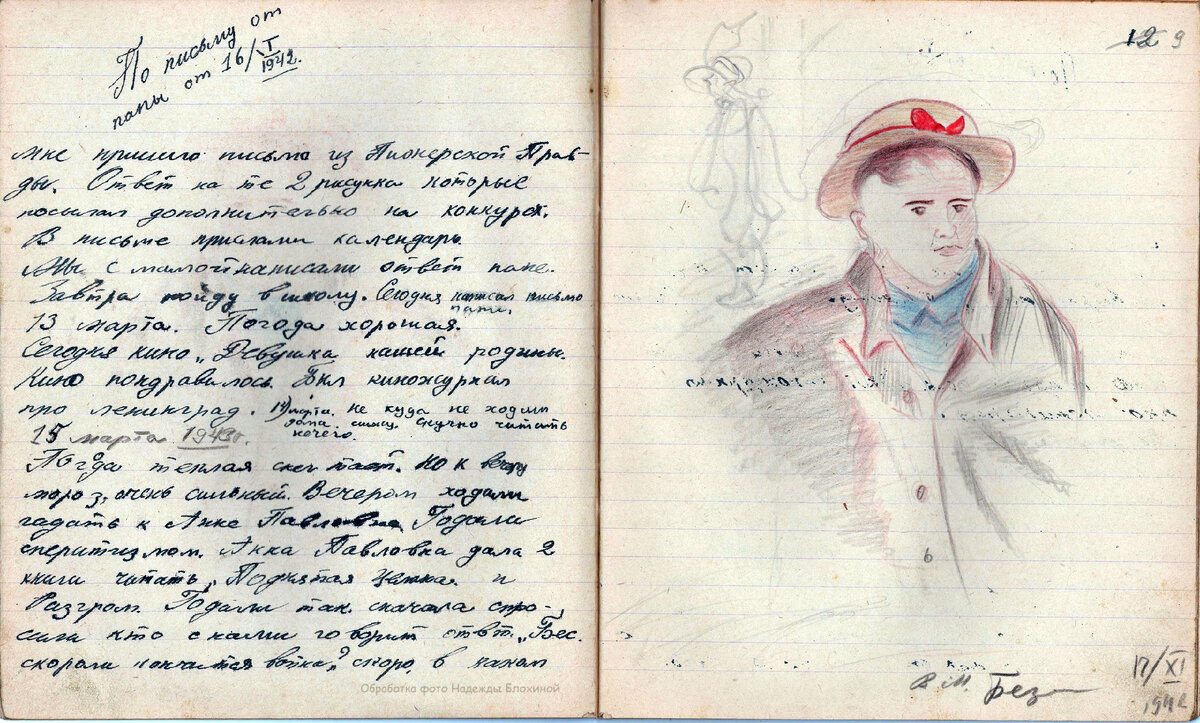 По письму от
папы от 16/I
1942.
мне пришло письмо из Пионерской Прав-
ды. Ответ на те 2 рисунка которые
посылал дополнительно на конкурс.
В письме прислали календарь.
Мы с мамой написали ответ папе.
Завтра пойду в школу. Сегодня написал письмо
папе.
13 марта. Погода хорошая.
Сегодня кино „Девушка нашей родины.
Кино пондравилось. Был киножурнал
про ленинград. 14) марта. не куда не ходил
дома сижу. Скучно читать
нечего.
15 марта 1943г.
Погода теплая снег тает. но к вечеру
мороз, очень сильный. Вечером ходили
гадать к Анне Павловне Годали
сперитизмом. Анна Павловна дала 2
книги читать „Поднятая целина и
Разгром. Годали так сначала спро-
сили кто с нами говорит ответ. „Бес.
скороли кончится война? скоро, в каком
Обработка фото Надежды Блохиной
12 9
В М. Без
17/XI
1942